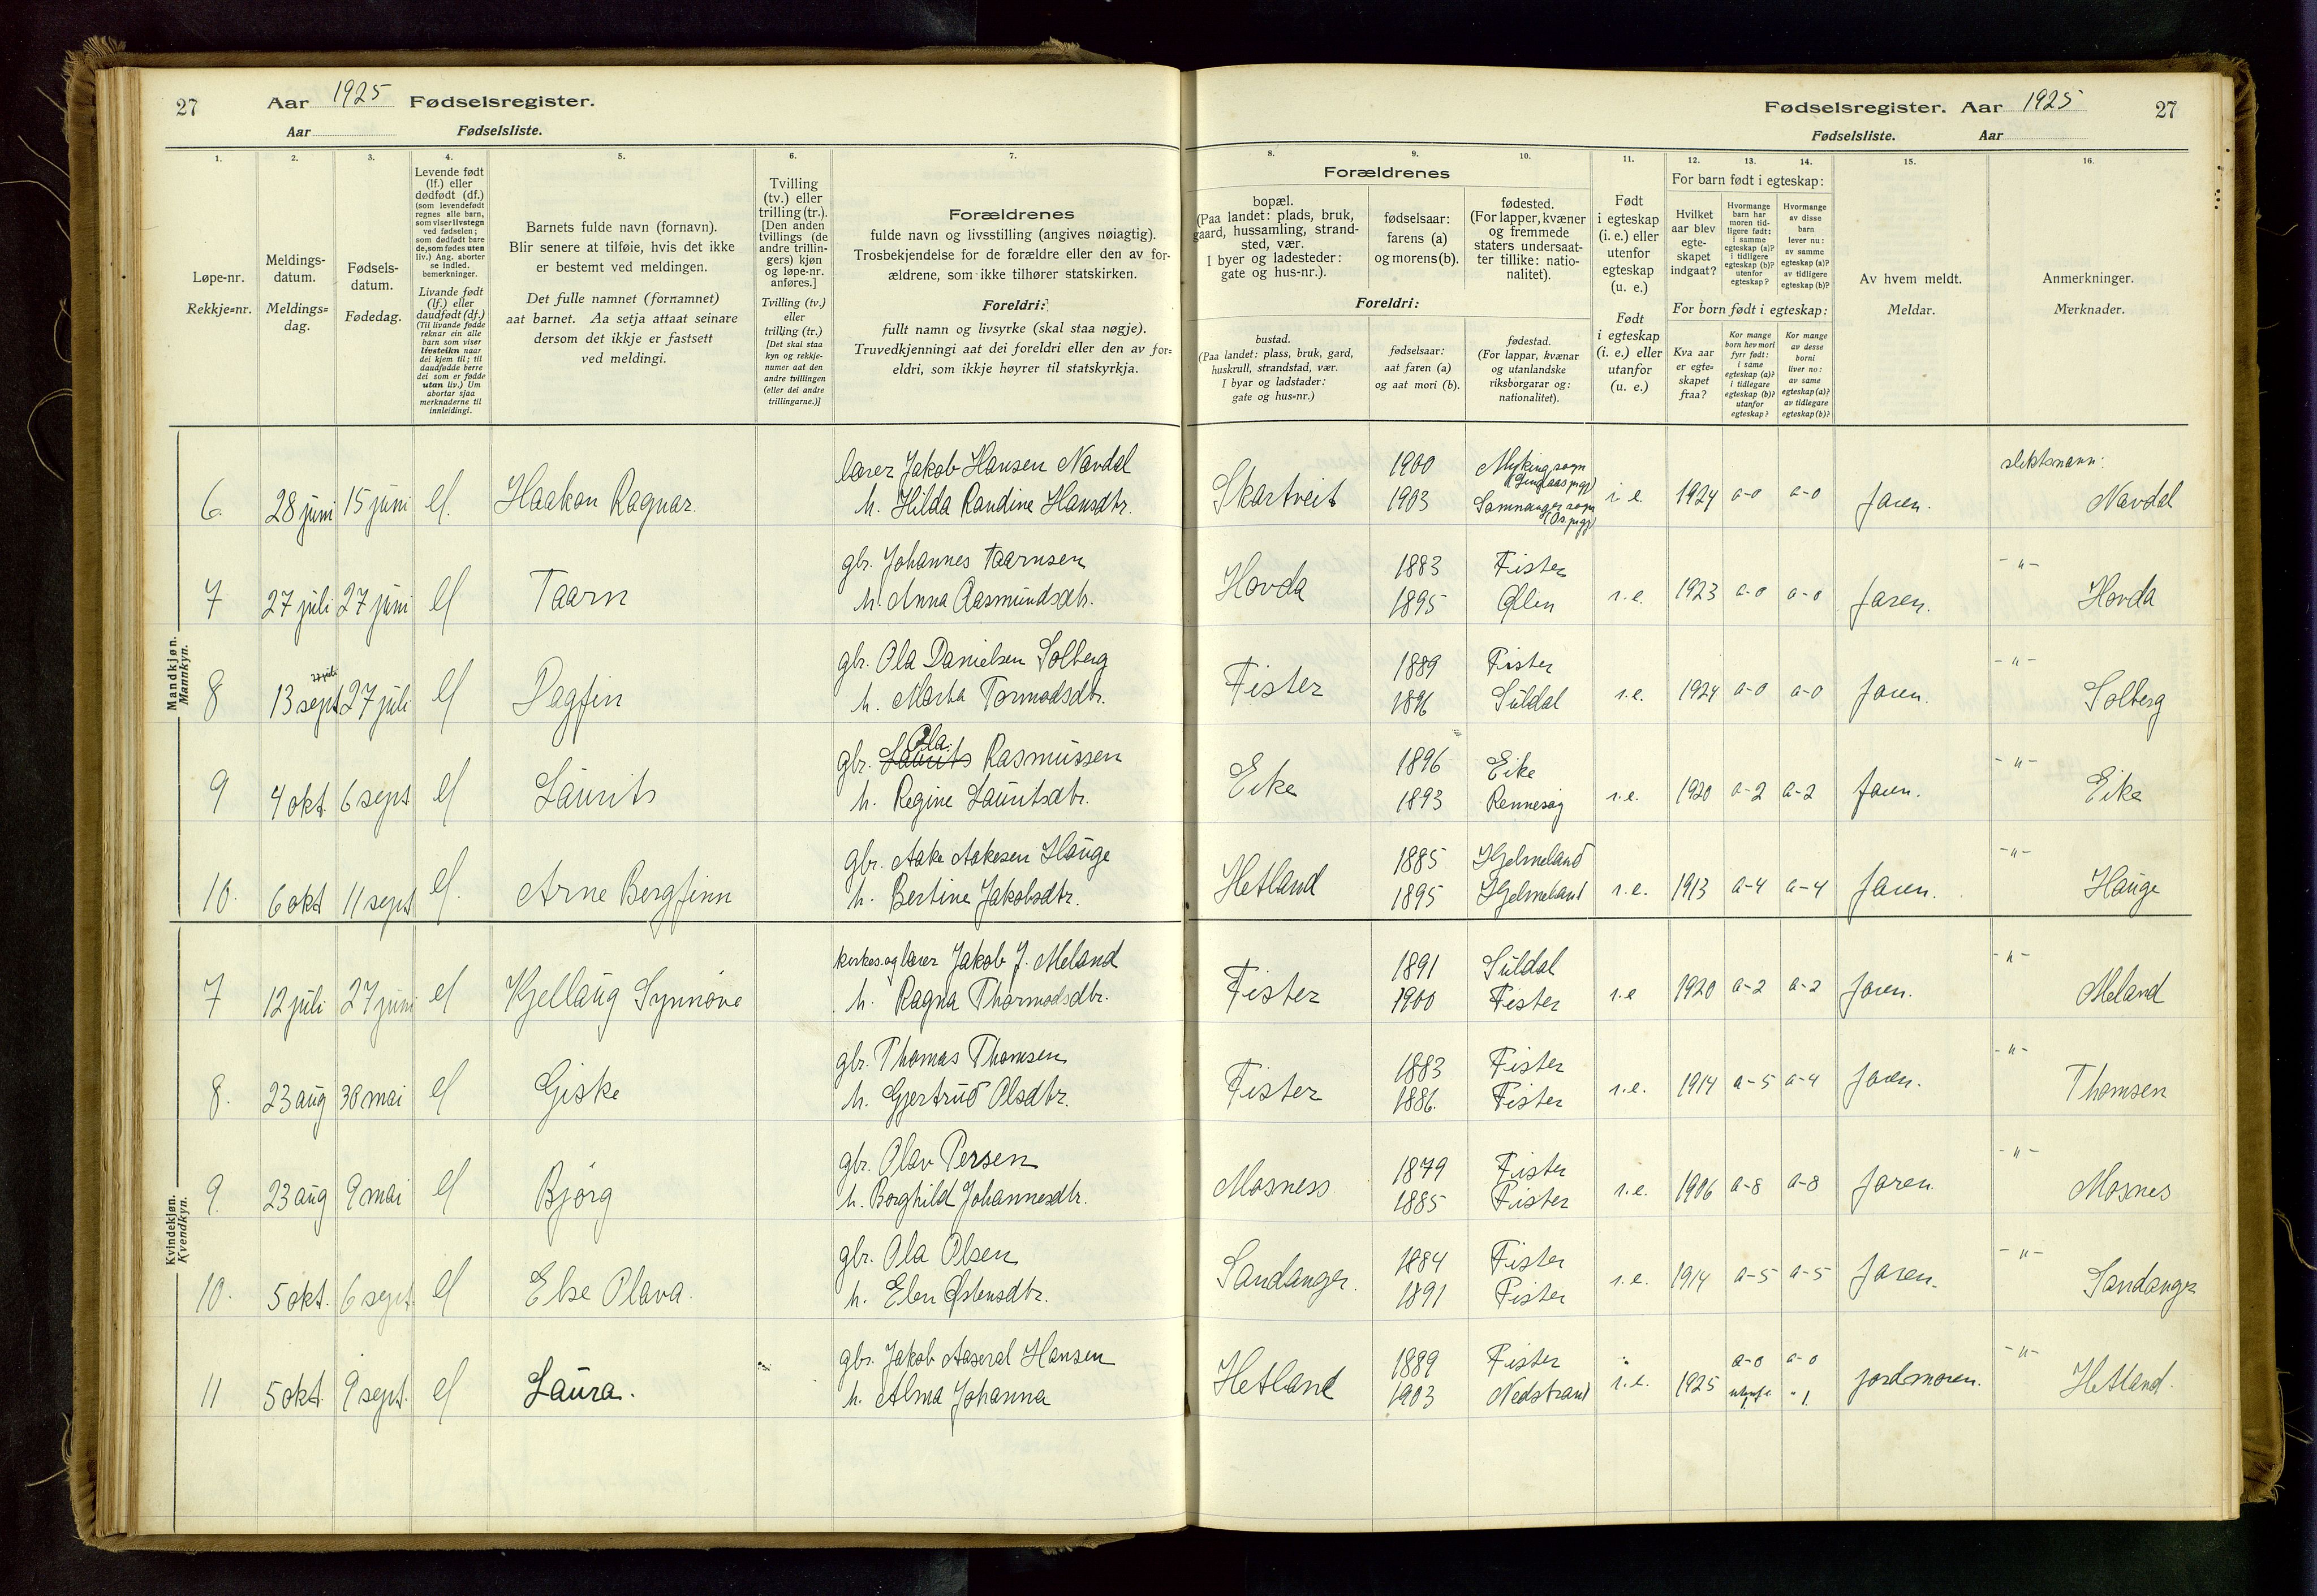 27 Aar 1925 Fødselsregister.
Aar Fødselsliste.
1. 2. 3. 4. 5. 6. 7.
Løpe-nr.
Rekkje=nr.
Meldings-
datum.
Meldings=
dag.
Fødsels-
datum.
Fødedag.
Levende født
(lf.) eller
dødfødt (df.)
(som levendefødt
regnes alle barn,
som viser livstegn
ved fødselen;
som dødfødt bare
de, som fødes uten
liv.) Ang. aborter
se indled.
bemerkninger.
Livande født
(lf.) eller
daudfødt (df.)
(Til livande fødde
reknar ein alle
barn som viser
livsteikn naar
dei kjem til; til
daudfødde berre
dei som er fødde
utan liv.) Um
abortar sjaa
merknaderne til
innleidingi.
Barnets fulde navn (fornavn).
Blir senere at tilføie, hvis det ikke
er bestemt ved meldingen.
Det fulle namnet (fornamnet)
aat barnet. Aa setja attaat seinare
dersom det ikkje er fastsett
ved meldingi.
Tvilling
(tv.) eller
trilling (tr.).
[Den anden
tvillings (de
andre trillin-
gers) kjøn
og løpe-nr.
anføres.]
Tvilling (tv.)
eller
trilling (tr.)
[Det skal staa
kyn og rekkje-
numer aat den
andre tvillingen
(eller dei andre
trillingarne.)]
Forældrenes
fulde navn og livsstilling (angives nøiagtig).
Trosbekjendelse for de forældre eller den av for-
ældrene, som ikke tilhører statskirken.
Foreldri:
fullt namn og livsyrke (skal staa nøgje).
Truvedkjenningi aat dei foreldri eller den av for=
eldri, som ikkje høyrer til statskyrkja.
Mandkjøn.
Mannkyn.
6. 28 juni 15 juni lf. Haakon Ragnar. lærer Jakob Hansen Navdal
h. Hilda Randine Hansdtr.
7 27 juli 27 juni lf Taarn gbr. Johannes Taarnsen
h. Anna Aasmundsdtr.
27 juli
8 13 sept 27 juli lf Dagfin gbr. Ola Danielsen Solberg
h. Marta Tormodsdtr.
9 4 okt. 6 sept lf Laurits gbr. Laurits Ola Rasmussen
h. Regine Lauritsdtr.
10. 6 okt 11 sept lf. Arne Bergfinn gbr. Aake Aakesen Hauge
h. Bertine Jakobsdtr.
Kvindekjøn.
Kvendkyn.
7 12 juli 27 juni lf Kjellaug Synnøve kirkes. og lærer Jakob J. Meland
h. Ragna Thormodsdtr.
8. 23 aug 30 mai lf Giske gbr. Thomas Thomsen
h. Gjertrud Olsdtr.
9. 23 aug 9 mai lf Bjørg gbr. Olav Persen
h. Borghild Johannesdtr.
10. 5 okt. 6 sept. lf Else Olava. gbr. Ola Olsen
h. Elen Østensdtr.
11 5 okt. 9 sept. lf Laura. gbr. Jakob Aaseral Hansen
h. Alma Johanna
Fødselsregister. Aar 1925 27
Fødselsliste. Aar
8. 9. 10. 11. 12. 13. 14. 15. 16.
Forældrenes
bopæl.
(Paa landet: plads, bruk,
gaard, hussamling, strand-
sted, vær.
I byer og ladesteder:
gate og hus-nr.).
fødselsaar:
farens (a)
og morens (b).
fødested.
(For lapper, kvæner
og fremmede
staters undersaat-
ter tillike: natio-
nalitet).
Foreldri:
bustad.
(Paa landet: plass, bruk, gard,
huskrull, strandstad, vær.
I byar og ladstader:
gate og hus=nr.)
fødselsaar:
aat faren (a)
og aat mori (b).
fødestad.
(For lappar, kvænar
og utanlandske
riksborgarar og:
nationalitet).
Født
i egteskap
(i. e.) eller
utenfor
egteskap
(u. e.)
Født
i egteskap
(i. e.) eller
utanfor
(u. e.)
For barn født i egteskap:
Hvilket
aar blev
egte-
skapet
indgaat?
Hvormange
barn har
moren tid-
ligere født:
i samme
egteskap (a)?
i tidligere
egteskap (b)?
utenfor
egteskap?
Hvormange
av disse
barn
lever nu:
av samme
egteskap (a)?
av tidligere
egteskap (b)?
For born født i egteskap:
Kva aar
er egte=
skapet
fraa?
Kor mange
born hev mori
fyrr født:
i same
egteskap (a)?
i tidlegare
egteskap (b)?
utanfor
egteskap?
Kor mange
av desse
borni
liver no:
av same
egteskap (a)?
av tidlegare
egteskap (b)?
Av hvem meldt.
Meldar.
Anmerkninger.
Merknader.
slektsnavn:
Skartveit 1900 Myking sogn (Lindaas pgj) i. e. 1924 a-0 a-0 faren. Navdal
1903 Samnanger sogn (Os pgj)
Hovda 1883 Fister i.e. 1923 a-0 a-0 faren. -"- Hovda
1895 Ølen
Fister 1889 Fister i.e. 1924 a-0 a-0 faren. -"- Solberg
1896 Suldal
Eike 1896 Eike i.e. 1920 a-2 a-2 faren. -"- Eike
1893 Rennesøy
Hetland 1885 Hjelmeland i.e. 1913 a-4 a-4 faren. -"- Hauge
1895 Hjelmeland
Fister 1891 Suldal i.e 1920 a-2 a-2 faren. -"- Meland
1900 Fister
Fister 1883 Fister i.e. 1914 a-5 a-4 faren. -"- Thomsen
1886. Fister
Mosness 1879 Fister i.e. 1906 a-8 a-8 faren. -"- Mosnes
1885 Fister
Sandanger. 1884 Fister i.e. 1914 a-5 a-5 faren. -"- Sandanger
1891 Fister
Hetland 1889 Fister i.e. 1925 a-0 a-0 jordmoren. -"- Hetland.
1903 Nedstrand 1. " 1.